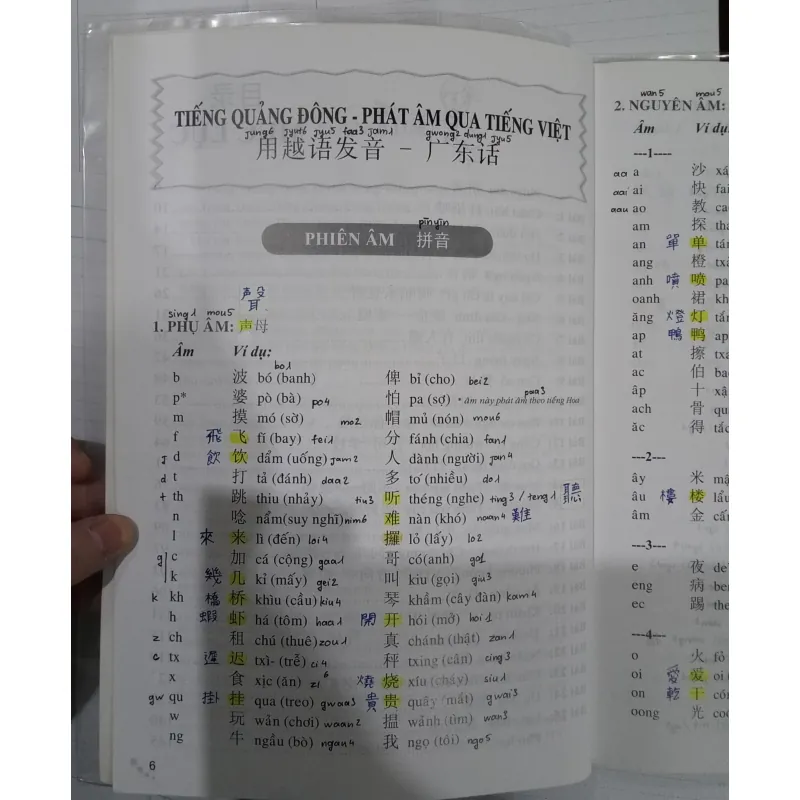 TIẾNG QUẢNG ĐÔNG - PHÁT ÂM QUA TIẾNG VIỆT
jung6 jyut6 jyu5 faa3 jam1 gwong2 dung1 jyu5
用越语发音 - 广东话
pīnyīn
PHIÊN ÂM 拼音
聲
sing1 mou5
1. PHỤ ÂM: 声母
Âm Ví dụ:
b 波 bó (banh) bo1 俾 bỉ (cho) bei2
p* 婆 pò (bà) po4 怕 pa (sợ) * âm này phát âm theo tiếng Hoa paa3
m 摸 mó (sờ) mo2 帽 mủ (nón) mou6
f 飛 飞 fí (bay) fei1 分 fánh (chia) fan1
j d 飲 饮 dẩm (uống) jam2 人 dành (người) jan4
d t 打 tả (đánh) daa2 多 tó (nhiều) do1
t th 跳 thiu (nhảy) tiu3 听 théng (nghe) ting3 / teng1 聽
n 唸 nẩm (suy nghĩ) nim6 难 nàn (khó) naan4 難
l 來 来 lì (đến) loi4 攞 lỏ (lấy) lo2
g c 加 cá (cộng) gaa1 哥 có (anh) go1
k 幾 几 kỉ (mấy) gei2 叫 kiu (gọi) giu3
k kh 橋 桥 khìu (cầu) kiu4 琴 khầm (cây đàn) kam4
h 蝦 虾 há (tôm) haa1 開 开 hói (mở) hoi1
z ch 租 chú (thuê) zou1 真 chánh (thật) zan1
c tx 遲 迟 txì- (trễ) ci4 秤 txing (cân) cing3
x 食 xịc (ăn) zi6 燒 烧 xíu (cháy) siu1
gw qu 掛 挂 qua (treo) gwaa3 貴 贵 quây (mắt) gwai3
w 玩 wản (chơi) waan2 揾 wảnh (tìm) wan3
ng 牛 ngầu (bò) ngan4 我 ngọ (tôi) ngo5
6
wan5 mou5
2. NGUYÊN ÂM:
Âm Ví dụ:
---1----
aa a 沙 xá
aai ai 快 fai
aau ao 教 ca
am 探 tha
an 單 单 tán
ang 橙 txá
anh 噴 喷 pa
oanh 裙 kh
ăng 燈 灯 tắn
ap 鴨 鸭 áp
at 擦 txá
ac 伯 bac
âp 十 xậ
ach 骨 qu
ăc 得 tắc
---2----
ây 米 mẩ
âu 樓 楼 lầu
âm 金 cấn
---3----
e 夜 de
eng 病 ben
ec 踢 the
---4----
o 火 fỏ
oi 愛 爱 oi
on 乾 干 cón
oong 光 coó